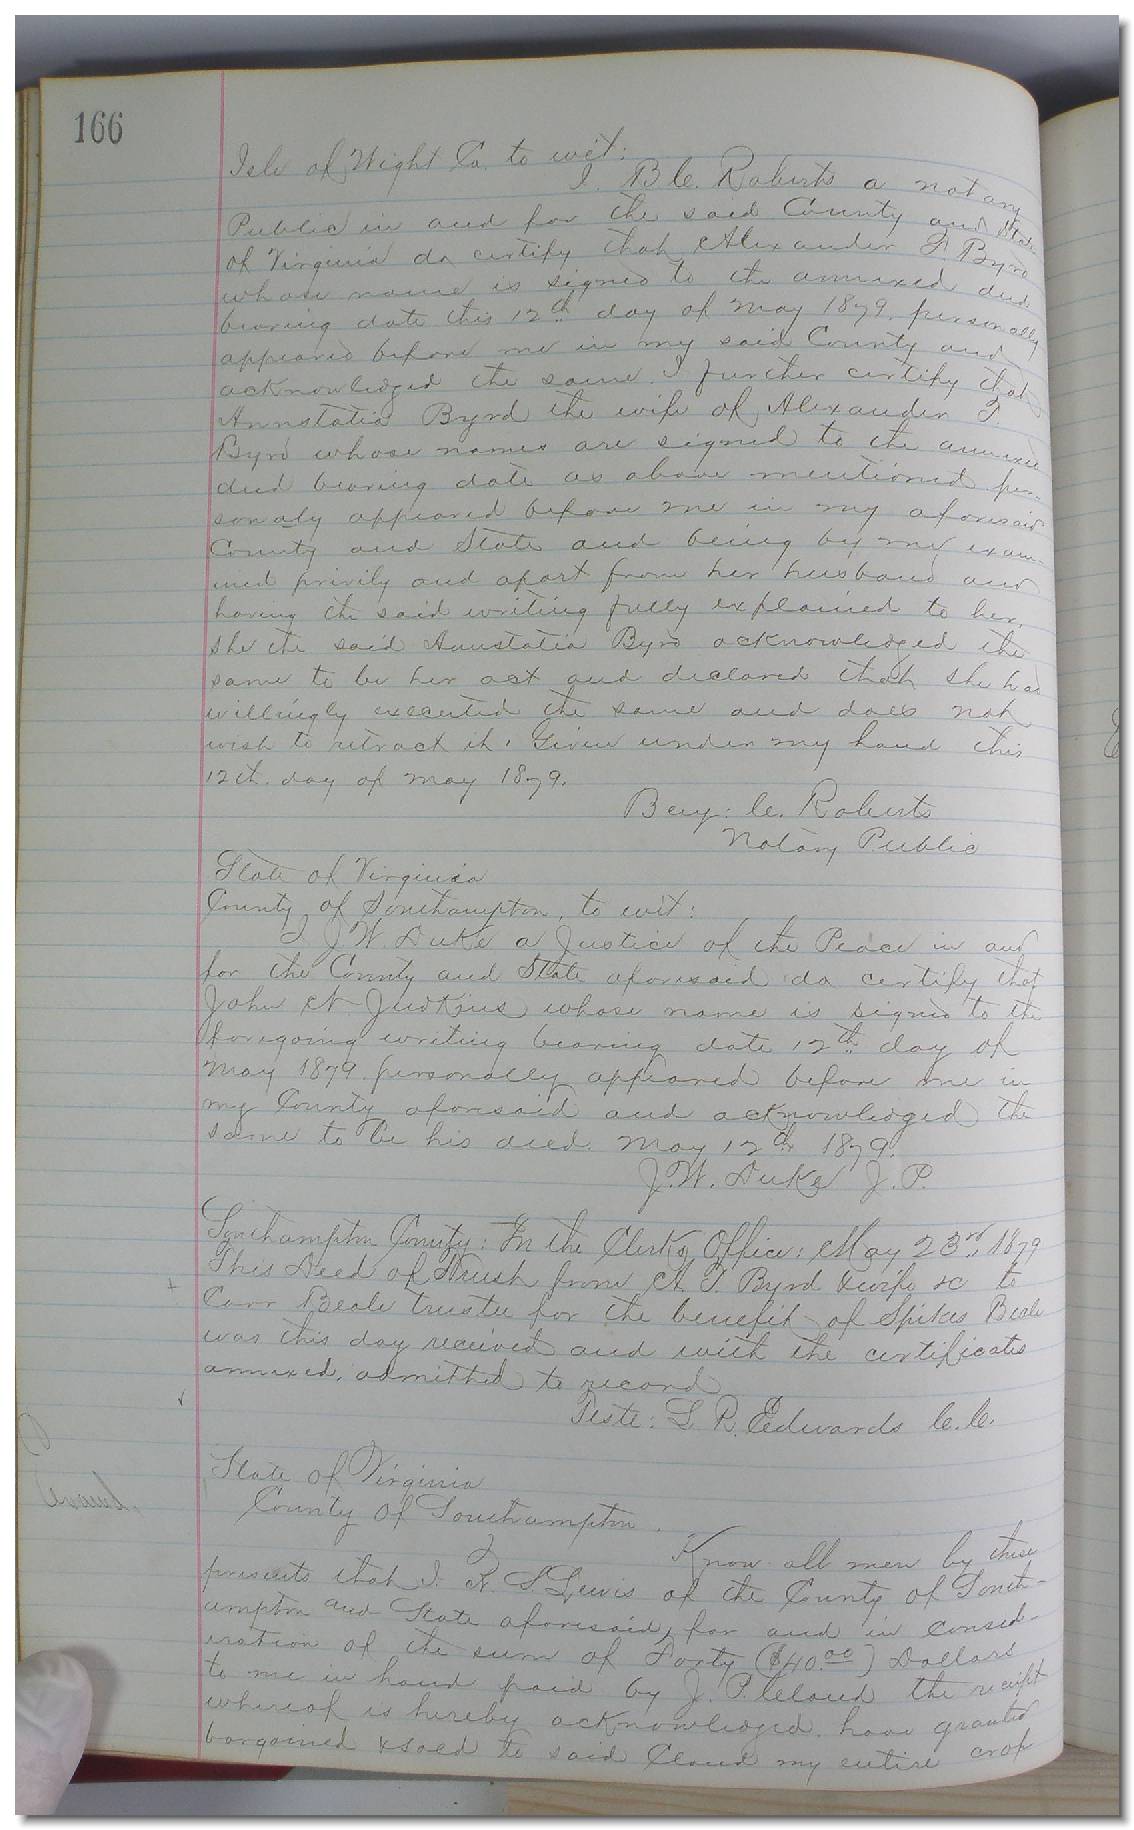 166
Isle of Wight Co. to wit:
I. B. C. Roberts a notary
Public in and for the said County and State
of Virginia do certify that Alexander T. Byrd
whose name is signed to the annexed deed
bearing date this 12th day of May 1879. personally
appeared before me in my said County and
acknowledged the same. I further certify that
Annstatia Byrd the wife of Alexander T.
Byrd whose names are signed to the annexed
deed bearing date as above mentioned per-
sonaly appeared before me in my aforesaid
County and State and being by me exam-
ined privily and apart from her husband and
having the said writing fully explained to her,
she the said Annstatia Byrd acknowledged the
same to be her act and declared that she had
willingly executed the same and does not
wish to retract it. Given under my hand this
12th. day of May 1879.
Benj: C. Roberts
Notary Public
State of Virginia
County of Southampton, to wit:
I J. W. Duke a Justice of the Peace in and
for the County and State aforesaid do certify that
John N. Judkins whose name is signed to the
foregoing writing bearing date 12th day of
May 1879. personally appeared before me in
my County aforesaid and acknowledged the
same to be his deed. May 12th 1879.
J. W. Duke J. P.
Southampton County: In the Clerks Office: May 23rd, 1879
This Deed of Trust from A. T. Byrd & wife &c to
Carr Beale trustee for the benefit of Spikes Beale
was this day received and with the certificates
annexed, admitted to record
Teste: L. R. Edwards C. C.
State of Virginia
County of Southampton.
Know all men by these
presents that I. R. S. Lewis of the County of South-
ampton and State aforesaid, for and in consid-
eration of the sum of Forty ($40.00) Dollars
to me in hand paid by J. P. Cloud the receipt
whereof is hereby acknowledged. have granted
bargained & sold to said Cloud my entire crop